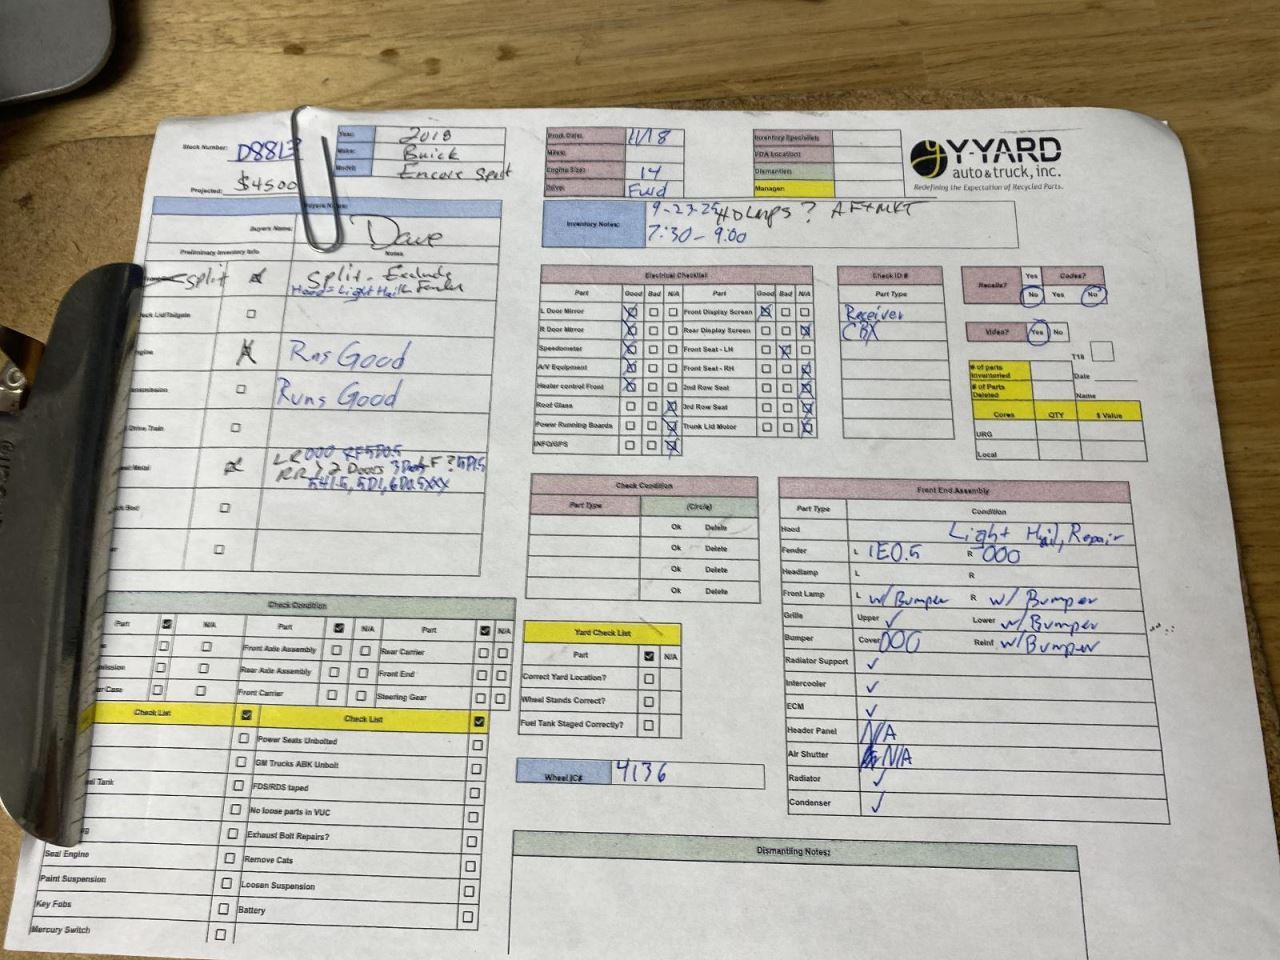 Stock Number: D8813
Projected: $4500
Year: 2018
Make: Buick
Model: Encore Sport
Prod Date: 11/18
Miles:
Engine Size: 14
Drive: Fwd
Inventory Specialists
PDA Location:
Dismantler:
Manager:
Y-YARD
auto & truck, inc.
Redefining the Expectation of Recycled Parts.
Inventory Notes: 9-23-25 HD Lamps? AFTMKT
7:30-9:00
Buyers Notes
Buyers Name: Dave
Preliminary Inventory Info Notes
Split Split - Exclude
Hood = Light Hail Fender
Lid/Tailgate
Engine Rns Good
Transmission Runs Good
Drive Train
Metal LR 000 RF 5D0.5
RR 2 Doors
Electrical Checklist
Part Good Bad N/A Part Good Bad N/A
L Door Mirror Front Display Screen
R Door Mirror Rear Display Screen
Speedometer Front Seat - LH
A/V Equipment Front Seat - RH
Heater control Front 2nd Row Seat
Roof Glass 3rd Row Seat
Power Running Boards Trunk Lid Motor
INFO/GPS
Check ID #
Part Type
Receiver
CBX
Recalls? Yes No Codes? Yes No
Video? Yes No
T18
# of parts Inventoried
Date
# of Parts Deleted
Name
Cores QTY $ Value
URG
Local
Check Condition
Part Type (Circle)
Ok Delete
Ok Delete
Ok Delete
Ok Delete
Front End Assembly
Part Type Condition
Hood Light Hail, Repair
Fender L 1E0.5 R 000
Headlamp L R
Front Lamp L w/ Bumper R w/ Bumper
Grille Upper ✓ Lower w/ Bumper
Bumper Cover 000 Reinf w/ Bumper
Radiator Support ✓
Intercooler ✓
ECM ✓
Header Panel N/A
Air Shutter N/A
Radiator ✓
Condenser ✓
Check Condition
Part N/A Part N/A Part N/A
Front Axle Assembly Rear Carrier
Rear Axle Assembly Front End
Case Front Carrier Steering Gear
Check List Check List
Power Seats Unbolted
GM Trucks ABK Unbolt
Tank FDS/RDS taped
No loose parts in VUC
Exhaust Bolt Repairs?
Seal Engine Remove Cats
Paint Suspension Loosen Suspension
Key Fobs Battery
Mercury Switch
Yard Check List
Part N/A
Correct Yard Location?
Wheel Stands Correct?
Fuel Tank Staged Correctly?
Wheel IC# 4136
Dismantling Notes: